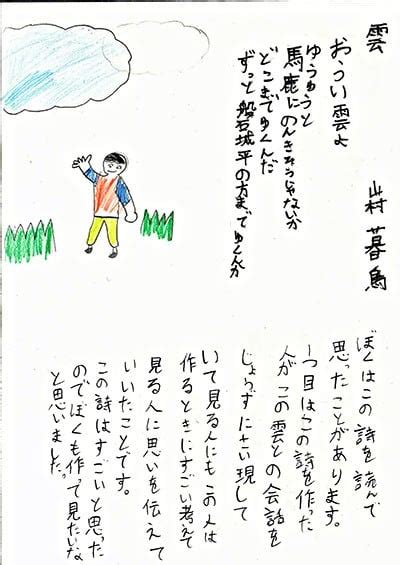 雲　山村暮鳥
おうい雲よ
ゆうゆうと
馬鹿にのんきそうじゃないか
どこまでゆくんだ
ずっと磐城平の方までゆくんか
ぼくはこの詩を読んで
思ったことがあります。
1つ目はこの詩を作った
人がこの雲との会話を
じょうずに現して
いて見る人にもこの人は
作るときにすごい考えて
見る人に思いを伝えて
いいたことです。
この詩はすごいと思った
のでぼくも作って見たいな
と思いました。